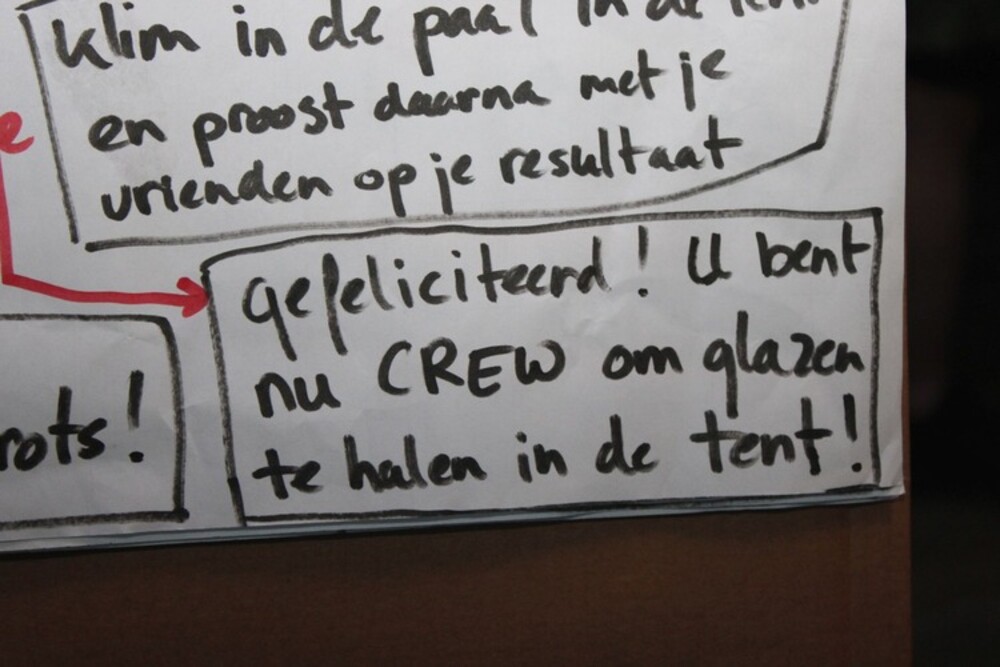 klim in de paal in de tent
en proost daarna met je
vrienden op je resultaat
gefeliciteerd! U bent
nu CREW om glazen
te halen in de tent!
rots!